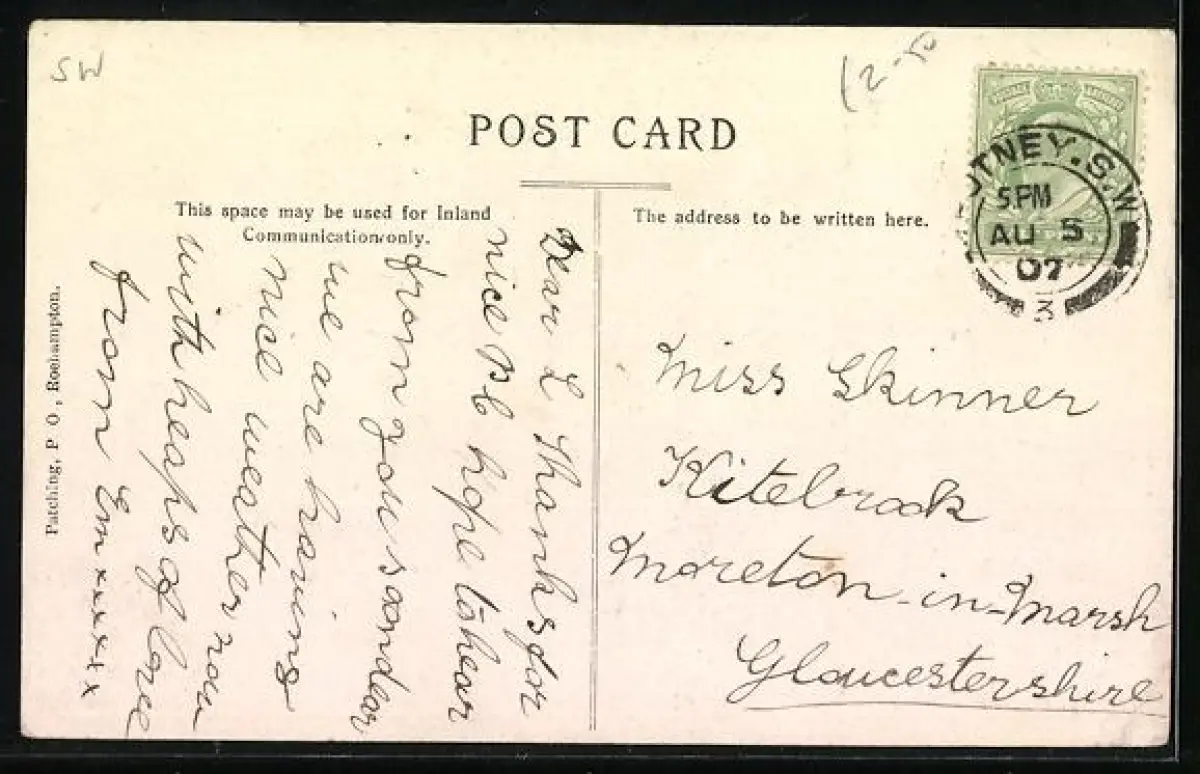 SW
12-50
POST CARD
This space may be used for Inland
Communication only.
The address to be written here.
PUTNEY. S.W
5 PM
AU 5
07
3
Dear L Thanks for
nice P.C hope to hear
from you soon dear
we are having
nice weather now
with heaps of love
from Em xxxxxx
Miss Skinner
Kitebrook
Moreton-in-Marsh
Gloucestershire
Patching, P O, Roehampton.